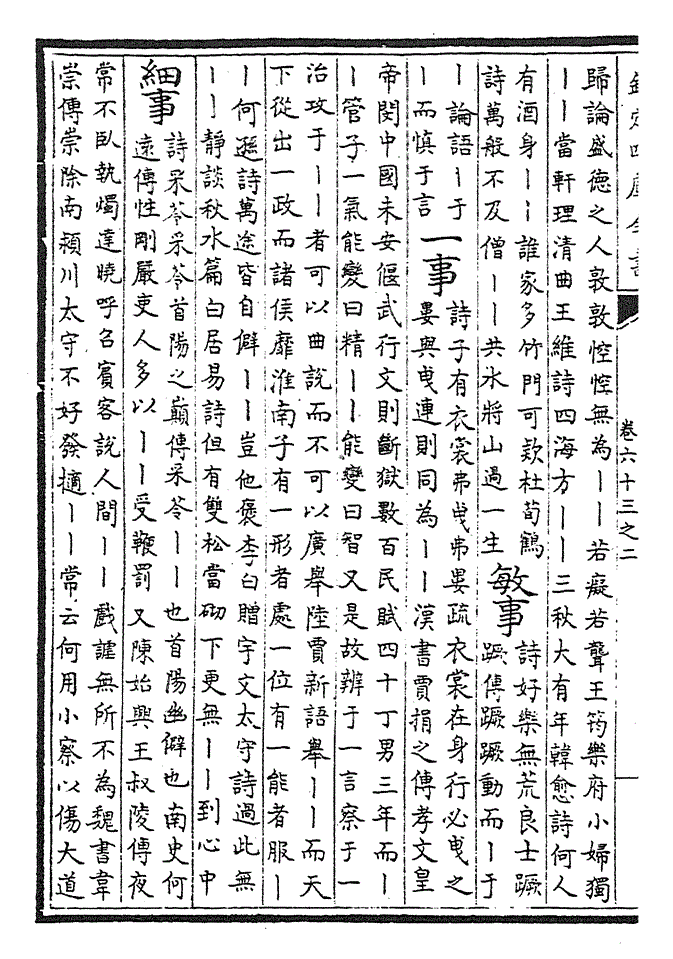 欽定四庫全書
卷六十三之二
歸論盛德之人敦敦悾悾無為丨丨若癡若聾王筠樂府小婦獨
丨丨當軒理清曲王維詩四海方丨丨三秋大有年韓愈詩何人
有酒身丨丨誰家多竹門可款杜荀鶴
詩萬般不及僧丨丨共水將山過一生
敏事
詩好樂無荒良士蹶
蹶傳蹶蹶動而丨于
丨論語丨于
丨而慎于言
一事
詩子有衣裳弗曳弗婁疏衣裳在身行必曳之
婁與曳連則同為丨丨漢書賈捐之傳孝文皇
帝閔中國未安偃武行文則斷獄數百民賦四十丁男三年而丨
丨管子一氣能變曰精丨丨能變曰智又是故辨于一言察于一
治攻于丨丨者可以曲說而不可以廣舉陸賈新語舉丨丨而天
下從出一政而諸侯靡淮南子有一形者處一位有一能者服丨
丨何遜詩萬途皆自僻丨丨豈他褒李白贈宇文太守詩過此無
丨丨靜談秋水篇白居易詩但有雙松當砌下更無丨丨到心中
細事
詩采苓采苓首陽之巔傳采苓丨丨也首陽幽僻也南史何
遠傳性剛嚴吏人多以丨丨受鞭罰又陳始興王叔陵傳夜
常不臥執燭達曉呼召賓客說人間丨丨戲謔無所不為魏書韋
崇傳崇除南潁川太守不好發擿丨丨常云何用小察以傷大道